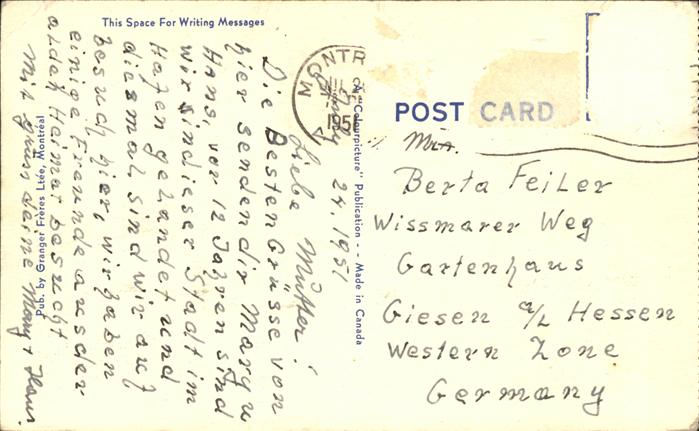 This Space For Writing Messages
24, 1951
Liebe Mutter!
Die Besten Grüsse von
hier senden dir Mary u
Hans, vor 12 Jahren sind
wir in dieser Stadt im
Hafen gelandet und
diesmal sind wir auf
besuch hier, wir haben
einige Freunde aus der
alden Heimat besucht
Mit gruss deine Mary + Hans.
Pub. by Granger Frères Ltée, Montréal
A "Colourpicture" Publication - - Made in Canada
MONTR
195
POST CARD
Mrs.
Berta Feiler
Wissmarer Weg
Gartenhaus
Giesen a/L Hessen
Western Zone
Germany